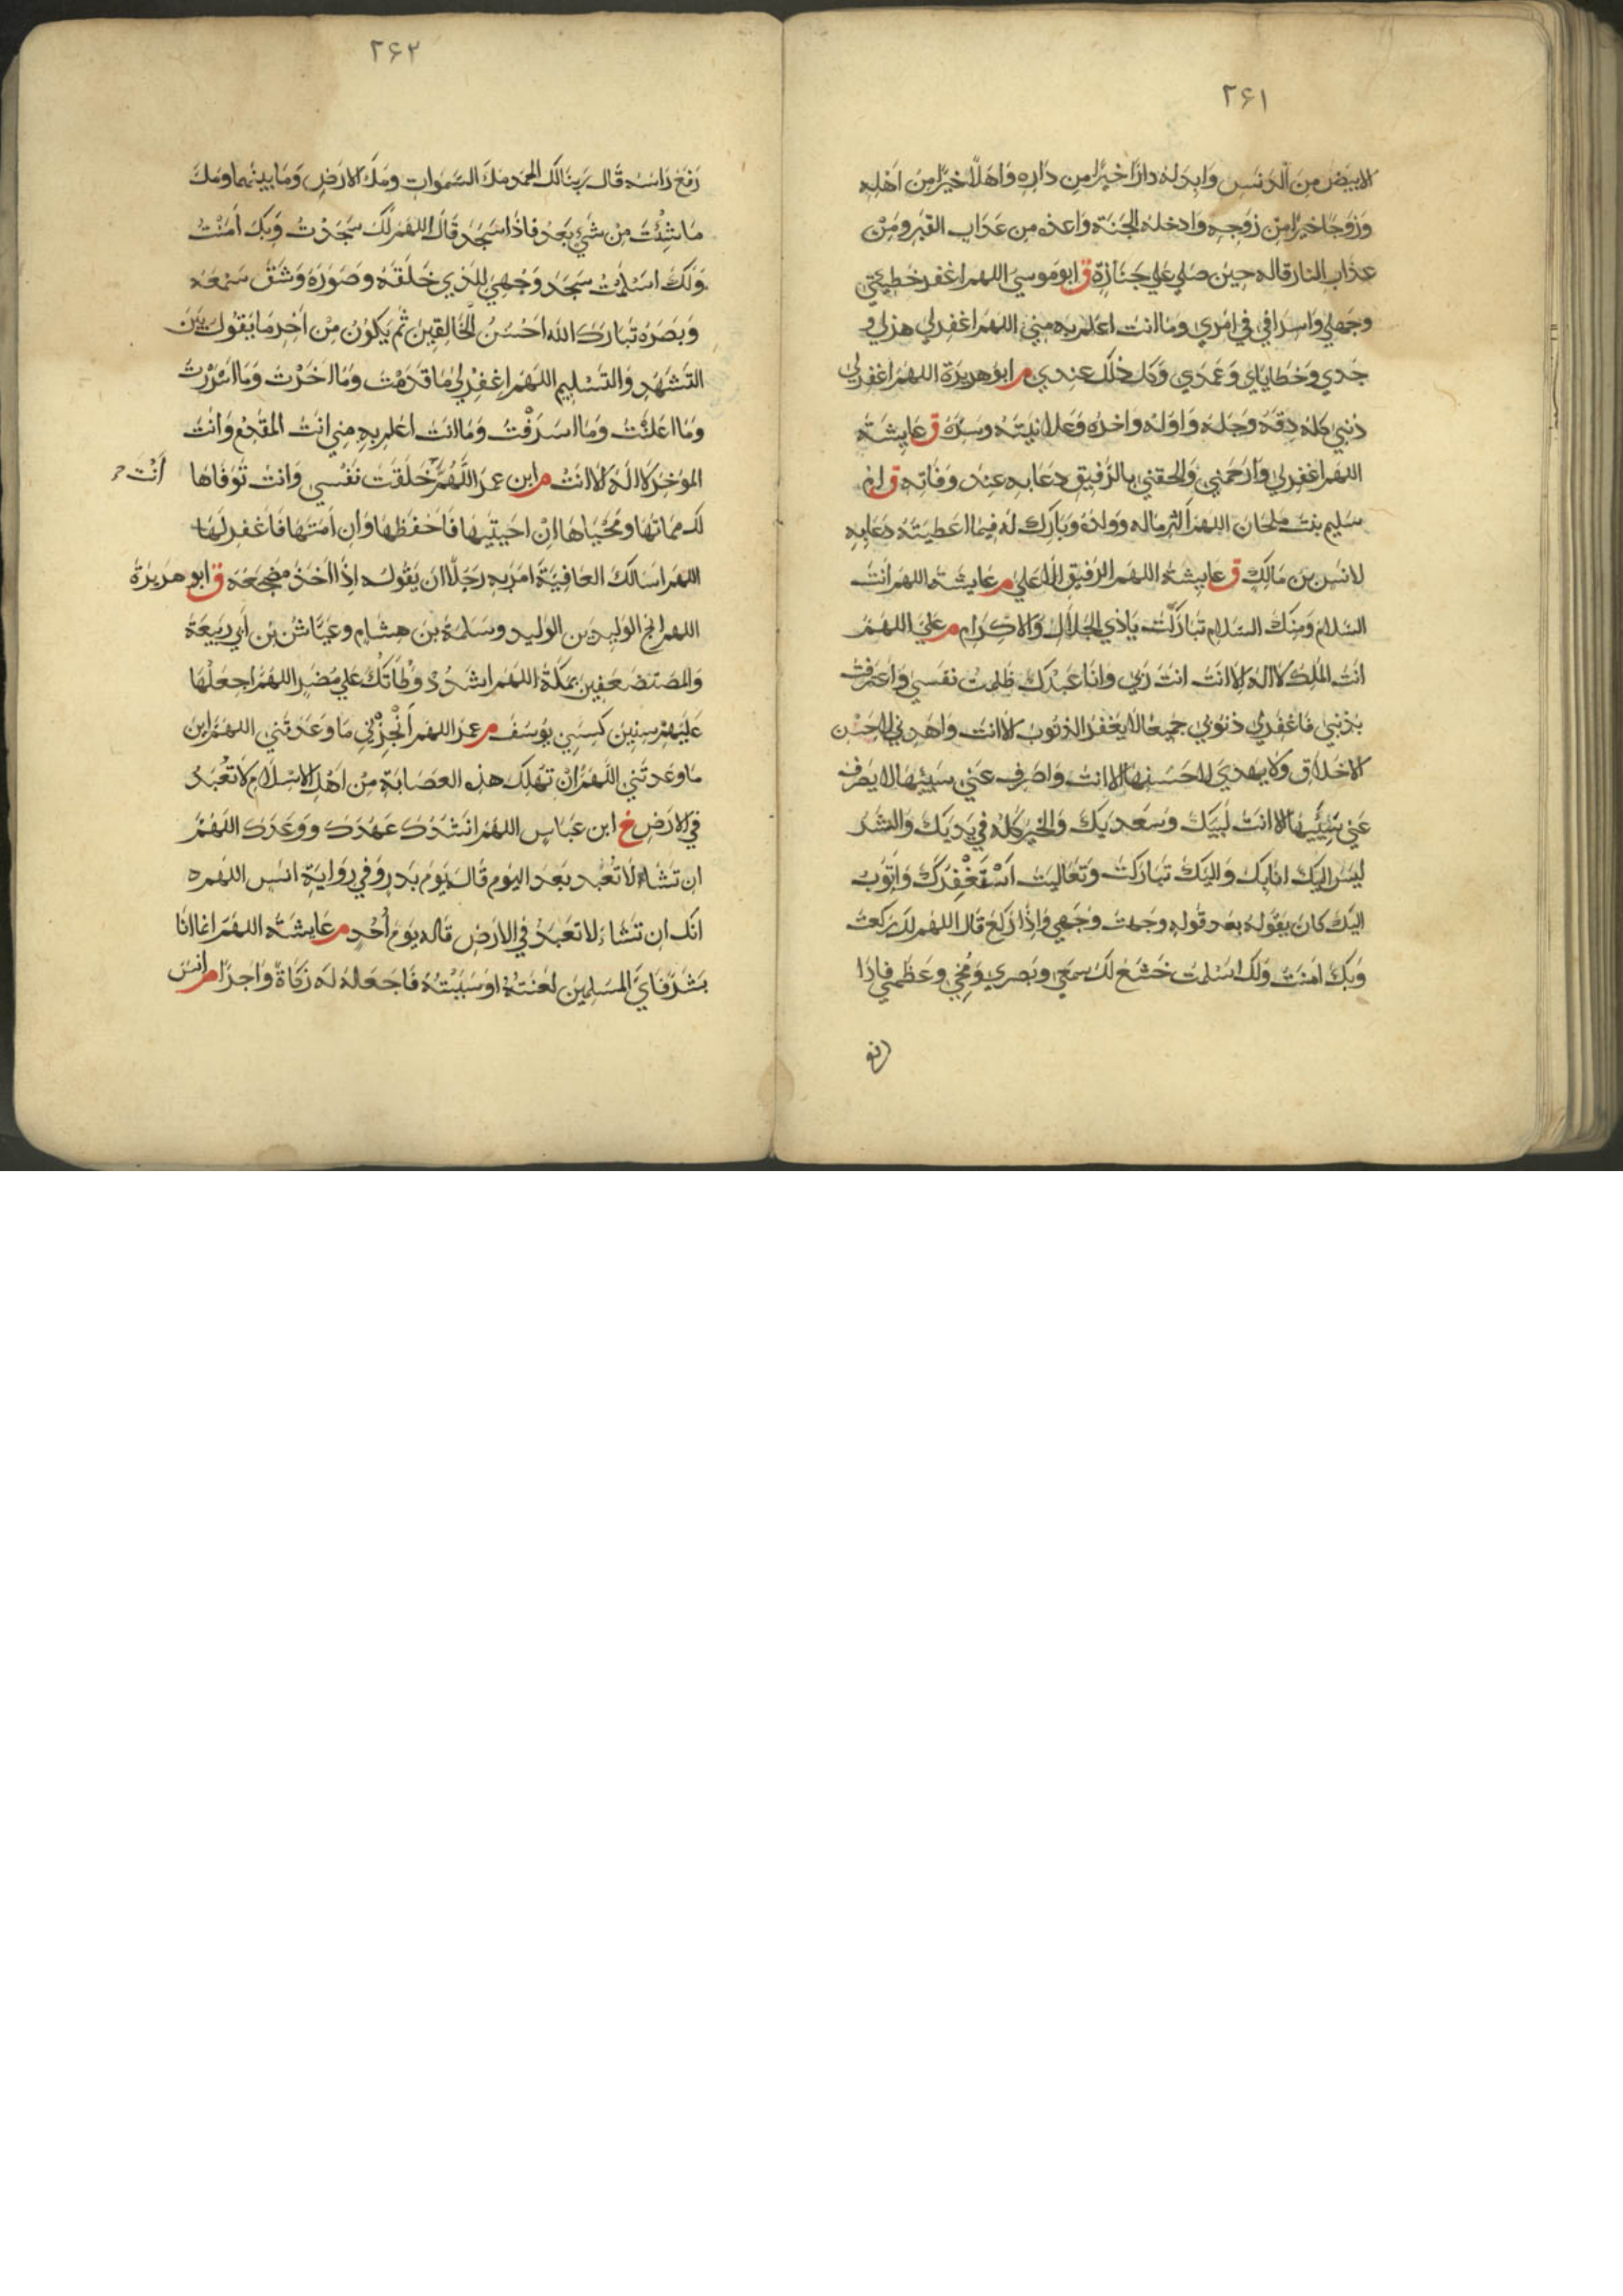 ٢۶١
الابيض من الدنس وابدله دارا خيرا من داره واهلا خيرا من اهله
وزوجا خيرا من زوجه وادخله الجنة واعذه من عذاب القبر ومن
عذاب النار قاله حين صلي علي جنازة ق ابو موسي اللهم اغفر خطيئتي
وجهلي واسرافي في امري وما انت اعلم به مني اللهم اغفر لي هزلي و
جدي وخطاياي وعمدي وكل ذلك عندي م ابو هريرة اللهم اغفر لي
ذنبي كله دقه وجله واوله واخره وعلانيته وسره ق عايشة
اللهم اغفر لي وارحمني والحقني بالرفيق دعا به عند وفاته ق ام
سليم بنت ملحان اللهم اكثر ماله وولده وبارك له فيما اعطيته دعا به
لانس بن مالك ق عايشة اللهم الرفيق الاعلي م عايشة اللهم انت
السلام ومنك السلام تباركت ياذي الجلال والاكرام م علي اللهم
انت الملك لا اله الا انت انت ربي وانا عبدك ظلمت نفسي واعترفت
بذنبي فاغفر لي ذنوبي جميعا لا يغفر الذنوب الا انت واهدني لاحسن
الاخلاق ولا يهدي لاحسنها الا انت واصرف عني سيئها لا يصرف
عني سيئها الا انت لبيك وسعديك والخير كله في يديك والشر
ليس اليك انا بك واليك تباركت وتعاليت استغفرك واتوب
اليك كان يقوله بعد قوله وجهت وجهي واذا ركع قال اللهم لك ركعت
وبك امنت ولك اسلمت خشع لك سمعي وبصري ومخي وعظمي فاذا
٢۶٢
رفع راسه قال ربنا لك الحمد ملء السموات وملء الارض وما بينهما وملء
ما شئت من شيء بعد فاذا سجد قال اللهم لك سجدت وبك امنت
ولك اسلمت سجد وجهي للذي خلقه وصوره وشق سمعه
وبصره تبارك الله احسن الخالقين ثم يكون من اخر ما يقول بين
التشهد والتسليم اللهم اغفر لي ما قدمت وما اخرت وما اسررت
وما اعلنت وما اسرفت وما انت اعلم به مني انت المقدم وانت
الموخر لا اله الا انت م ابن عمر اللهم خلقت نفسي وانت توفاها
انت
لك مماتها ومحياها ان احييتها فاحفظها وان امتها فاغفر لها
اللهم اسالك العافية امر به رجلا ان يقوله اذا اخذ مضجعه ق ابو هريرة
اللهم انج الوليد بن الوليد وسلمة بن هشام وعياش بن ابي ربيعة
والمصتضعفين بمكة اللهم اشدد وطاتك علي مضر اللهم اجعلها
عليهم سنين كسني يوسف م عمر اللهم انجز لي ما وعدتني اللهم اين
ما وعدتني اللهم ان تهلك هذه العصابة من اهل الاسلام لا تعبد
في الارض خ ابن عباس اللهم انشدك عهدك ووعدك اللهم
ان تشاء لا تعبد بعد اليوم قاله يوم بدر وفي رواية انس اللهم ه
انك ان تشاء لا تعبد في الارض قاله يوم احد م عايشة اللهم انما انا
بشر فاي المسلمين لعنته او سببته فاجعله له زكاة واجرا م انس